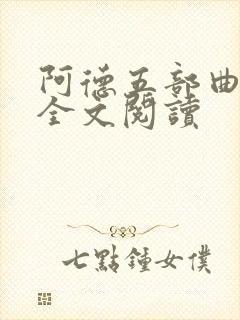 阿德五部曲
全文閱讀
七點鐘女僕